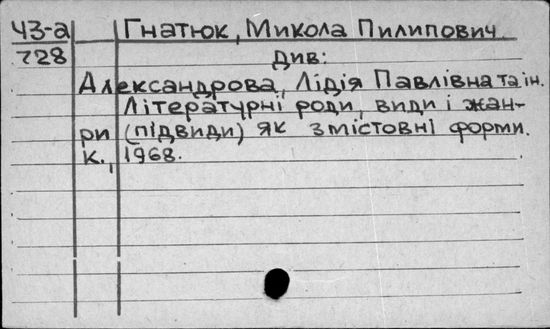 Ч3-а Гнатюк, Микола Пилипович
728 Див:
Александрова, Лідія Павлівна та ін.
Літературні роди, види і жан-
ри (підвиди) як змістовні форми.
К., 1968.